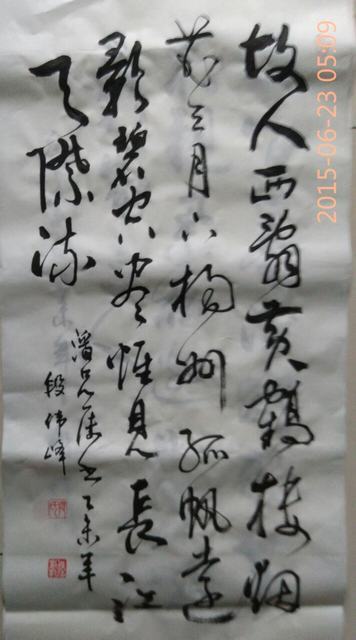 故人西辞黄鹤楼烟
花三月下扬州孤帆远
影碧空尽惟见长江
天际流
乙未年
段伟峰
2015-06-23 05:09